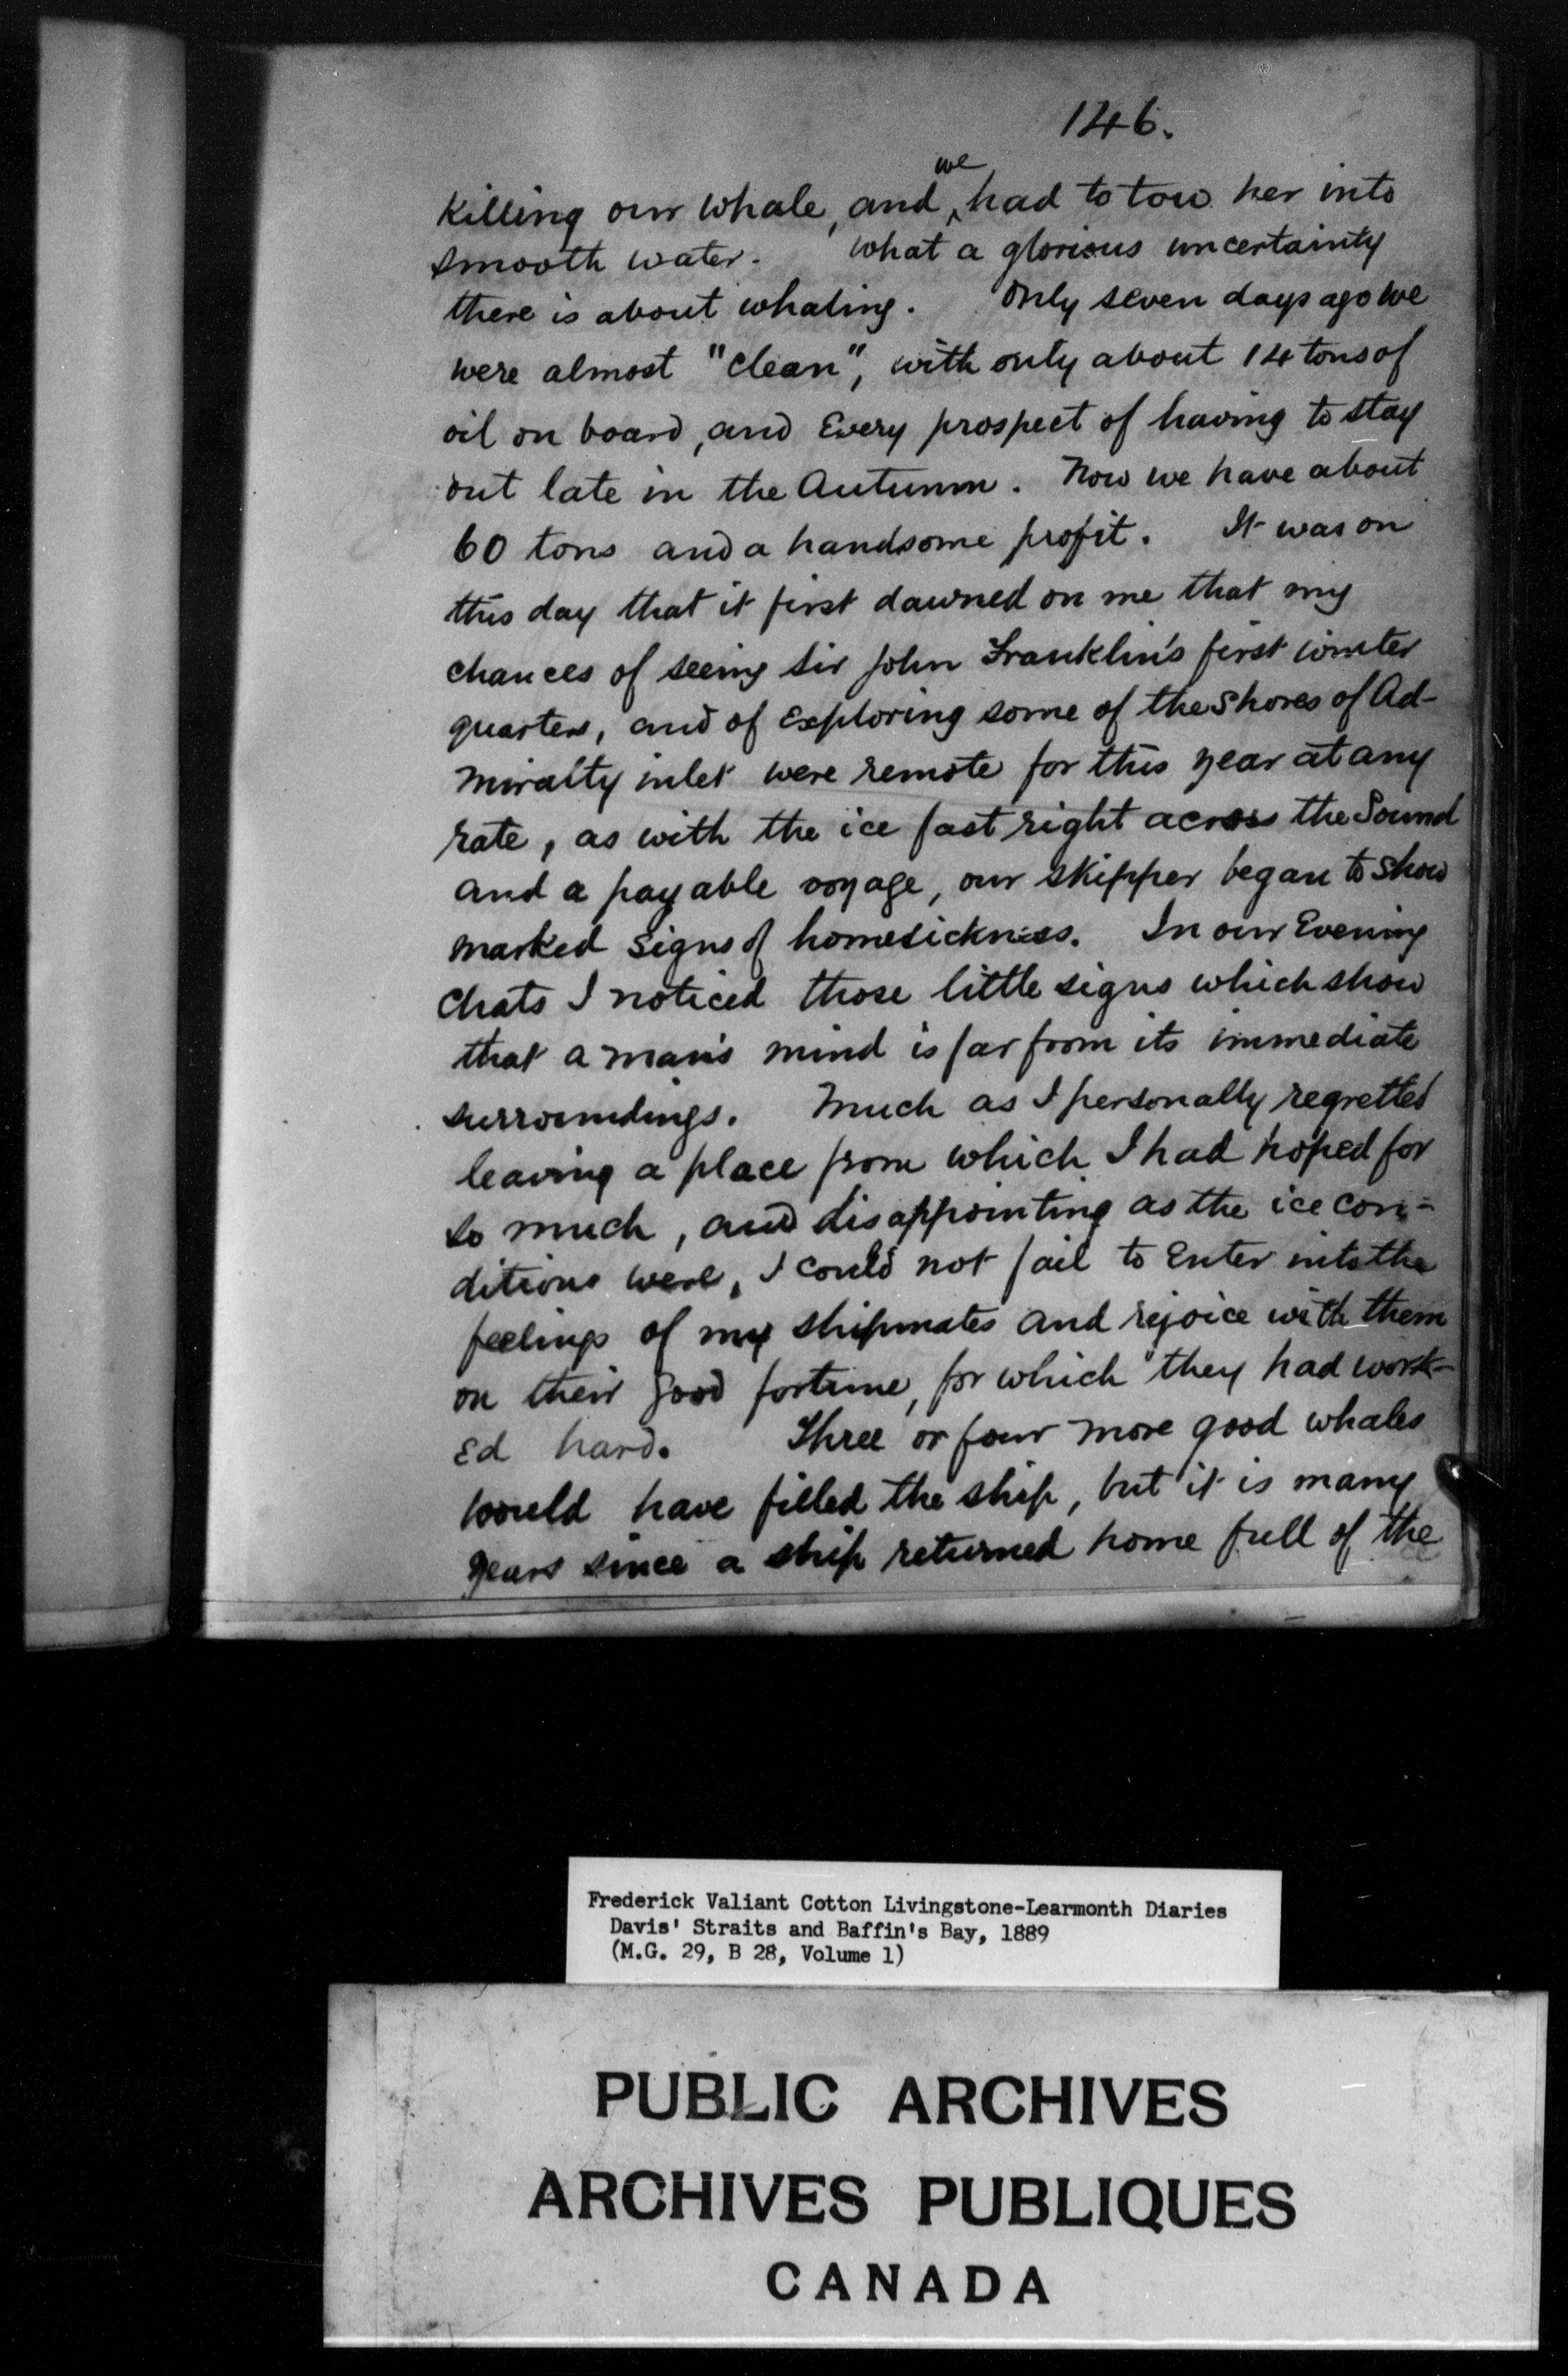 146.
Killing our whale, and we had to tow her into
smooth water. What a glorious uncertainty
there is about whaling. Only seven days ago we
were almost "clean", with only about 14 tons of
oil on board, and Every prospect of having to stay
out late in the Autumn. Now we have about
60 tons and a handsome profit. It was on
this day that it first dawned on me that my
chances of seeing Sir John Franklin's first winter
quarters, and of Exploring some of the shores of Ad-
miralty inlet were remote for this year at any
rate, as with the ice fast right across the Sound
and a payable voyage, our skipper began to show
marked signs of homesickness. In our Evening
chats I noticed those little signs which show
that a man's mind is far from its immediate
surroundings. Much as I personally regretted
leaving a place from which I had hoped for
so much, and disappointing as the ice con-
ditions were, I could not fail to Enter into the
feelings of my shipmates and rejoice with them
on their good fortune, for which they had work-
Ed hard. Three or four more good whales
would have filled the ship, but it is many
years since a ship returned home full of the
Frederick Valiant Cotton Livingstone-Learmonth Diaries
Davis' Straits and Baffin's Bay, 1889
(M.G. 29, B 28, Volume 1)
PUBLIC ARCHIVES
ARCHIVES PUBLIQUES
CANADA